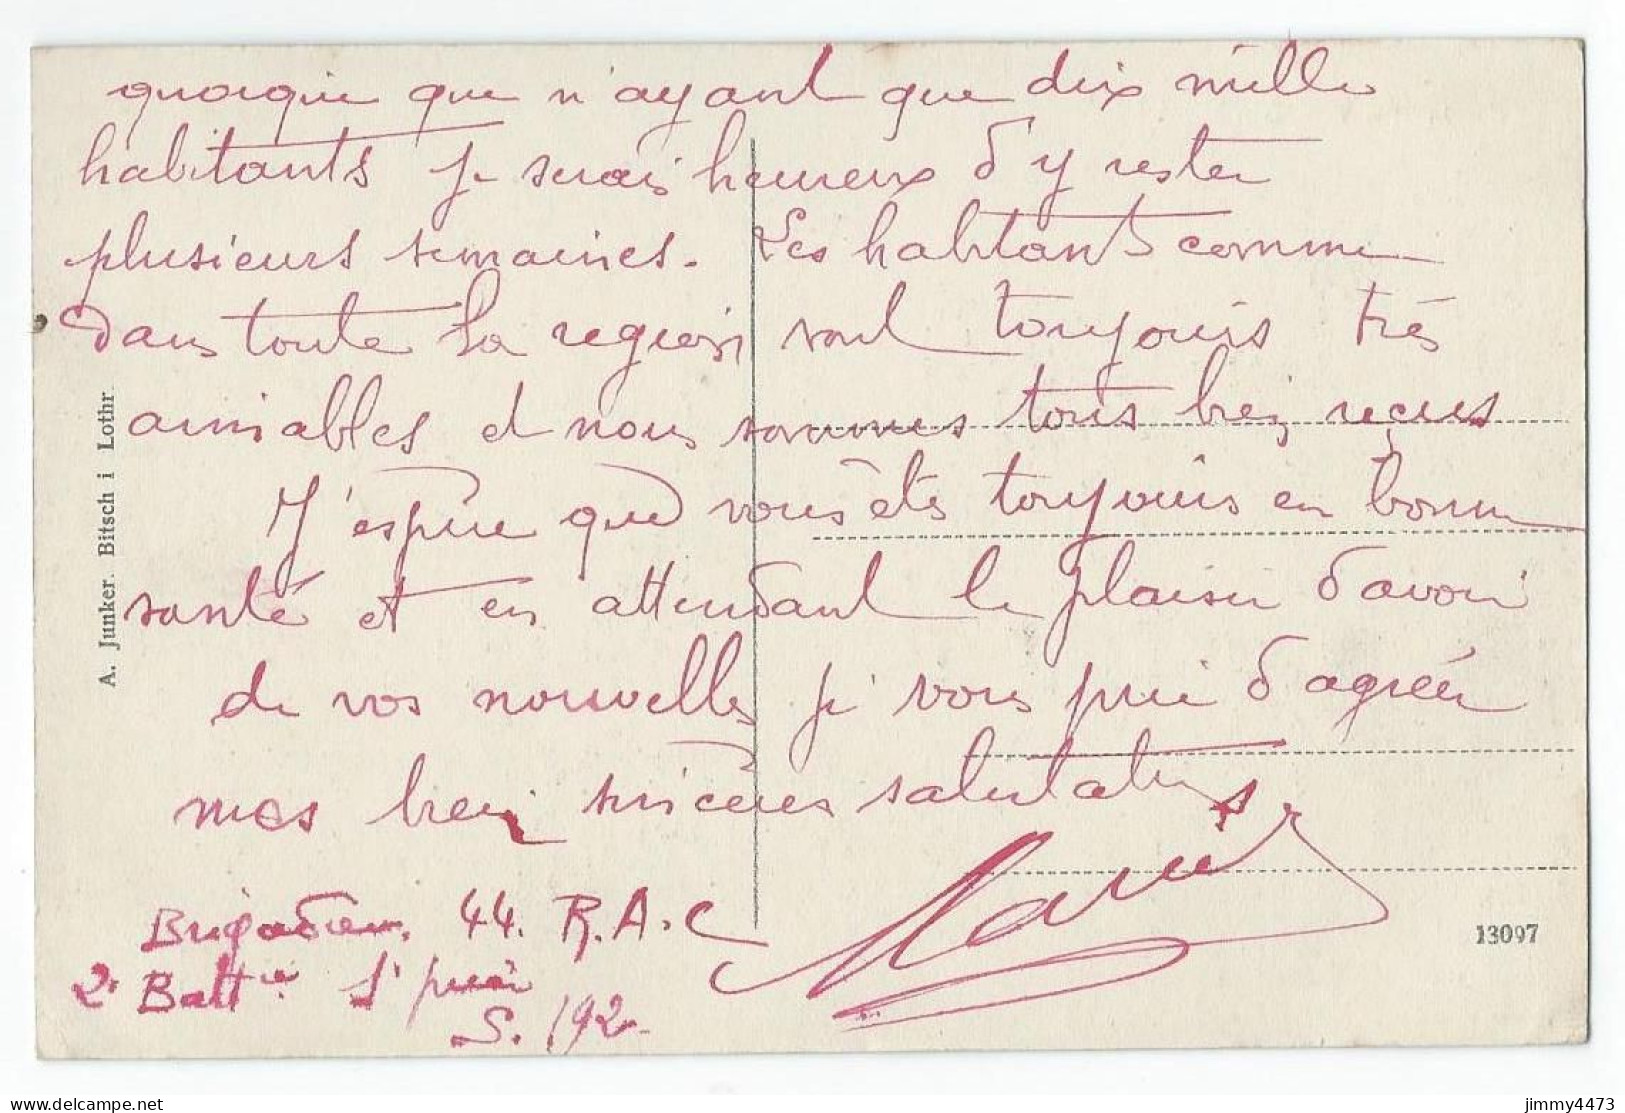 quoique que n'ayant que dix mille
habitants je serais heureux d'y rester
plusieurs semaines. Les habitants comme
dans toute la region sont toujours très
aimables et nous sommes tous bien reçus
J'espère que vous êtes toujours en bonne
santé et en attendant le plaisir d'avoir
de vos nouvelles je vous prie d'agréer
mes bien sincères salutations
Brigadier. 44. R.A.C
2e Battie
S. 192
A. Junker. Bitsch i Lothr.
13097
delcampe.net
jimmy4473